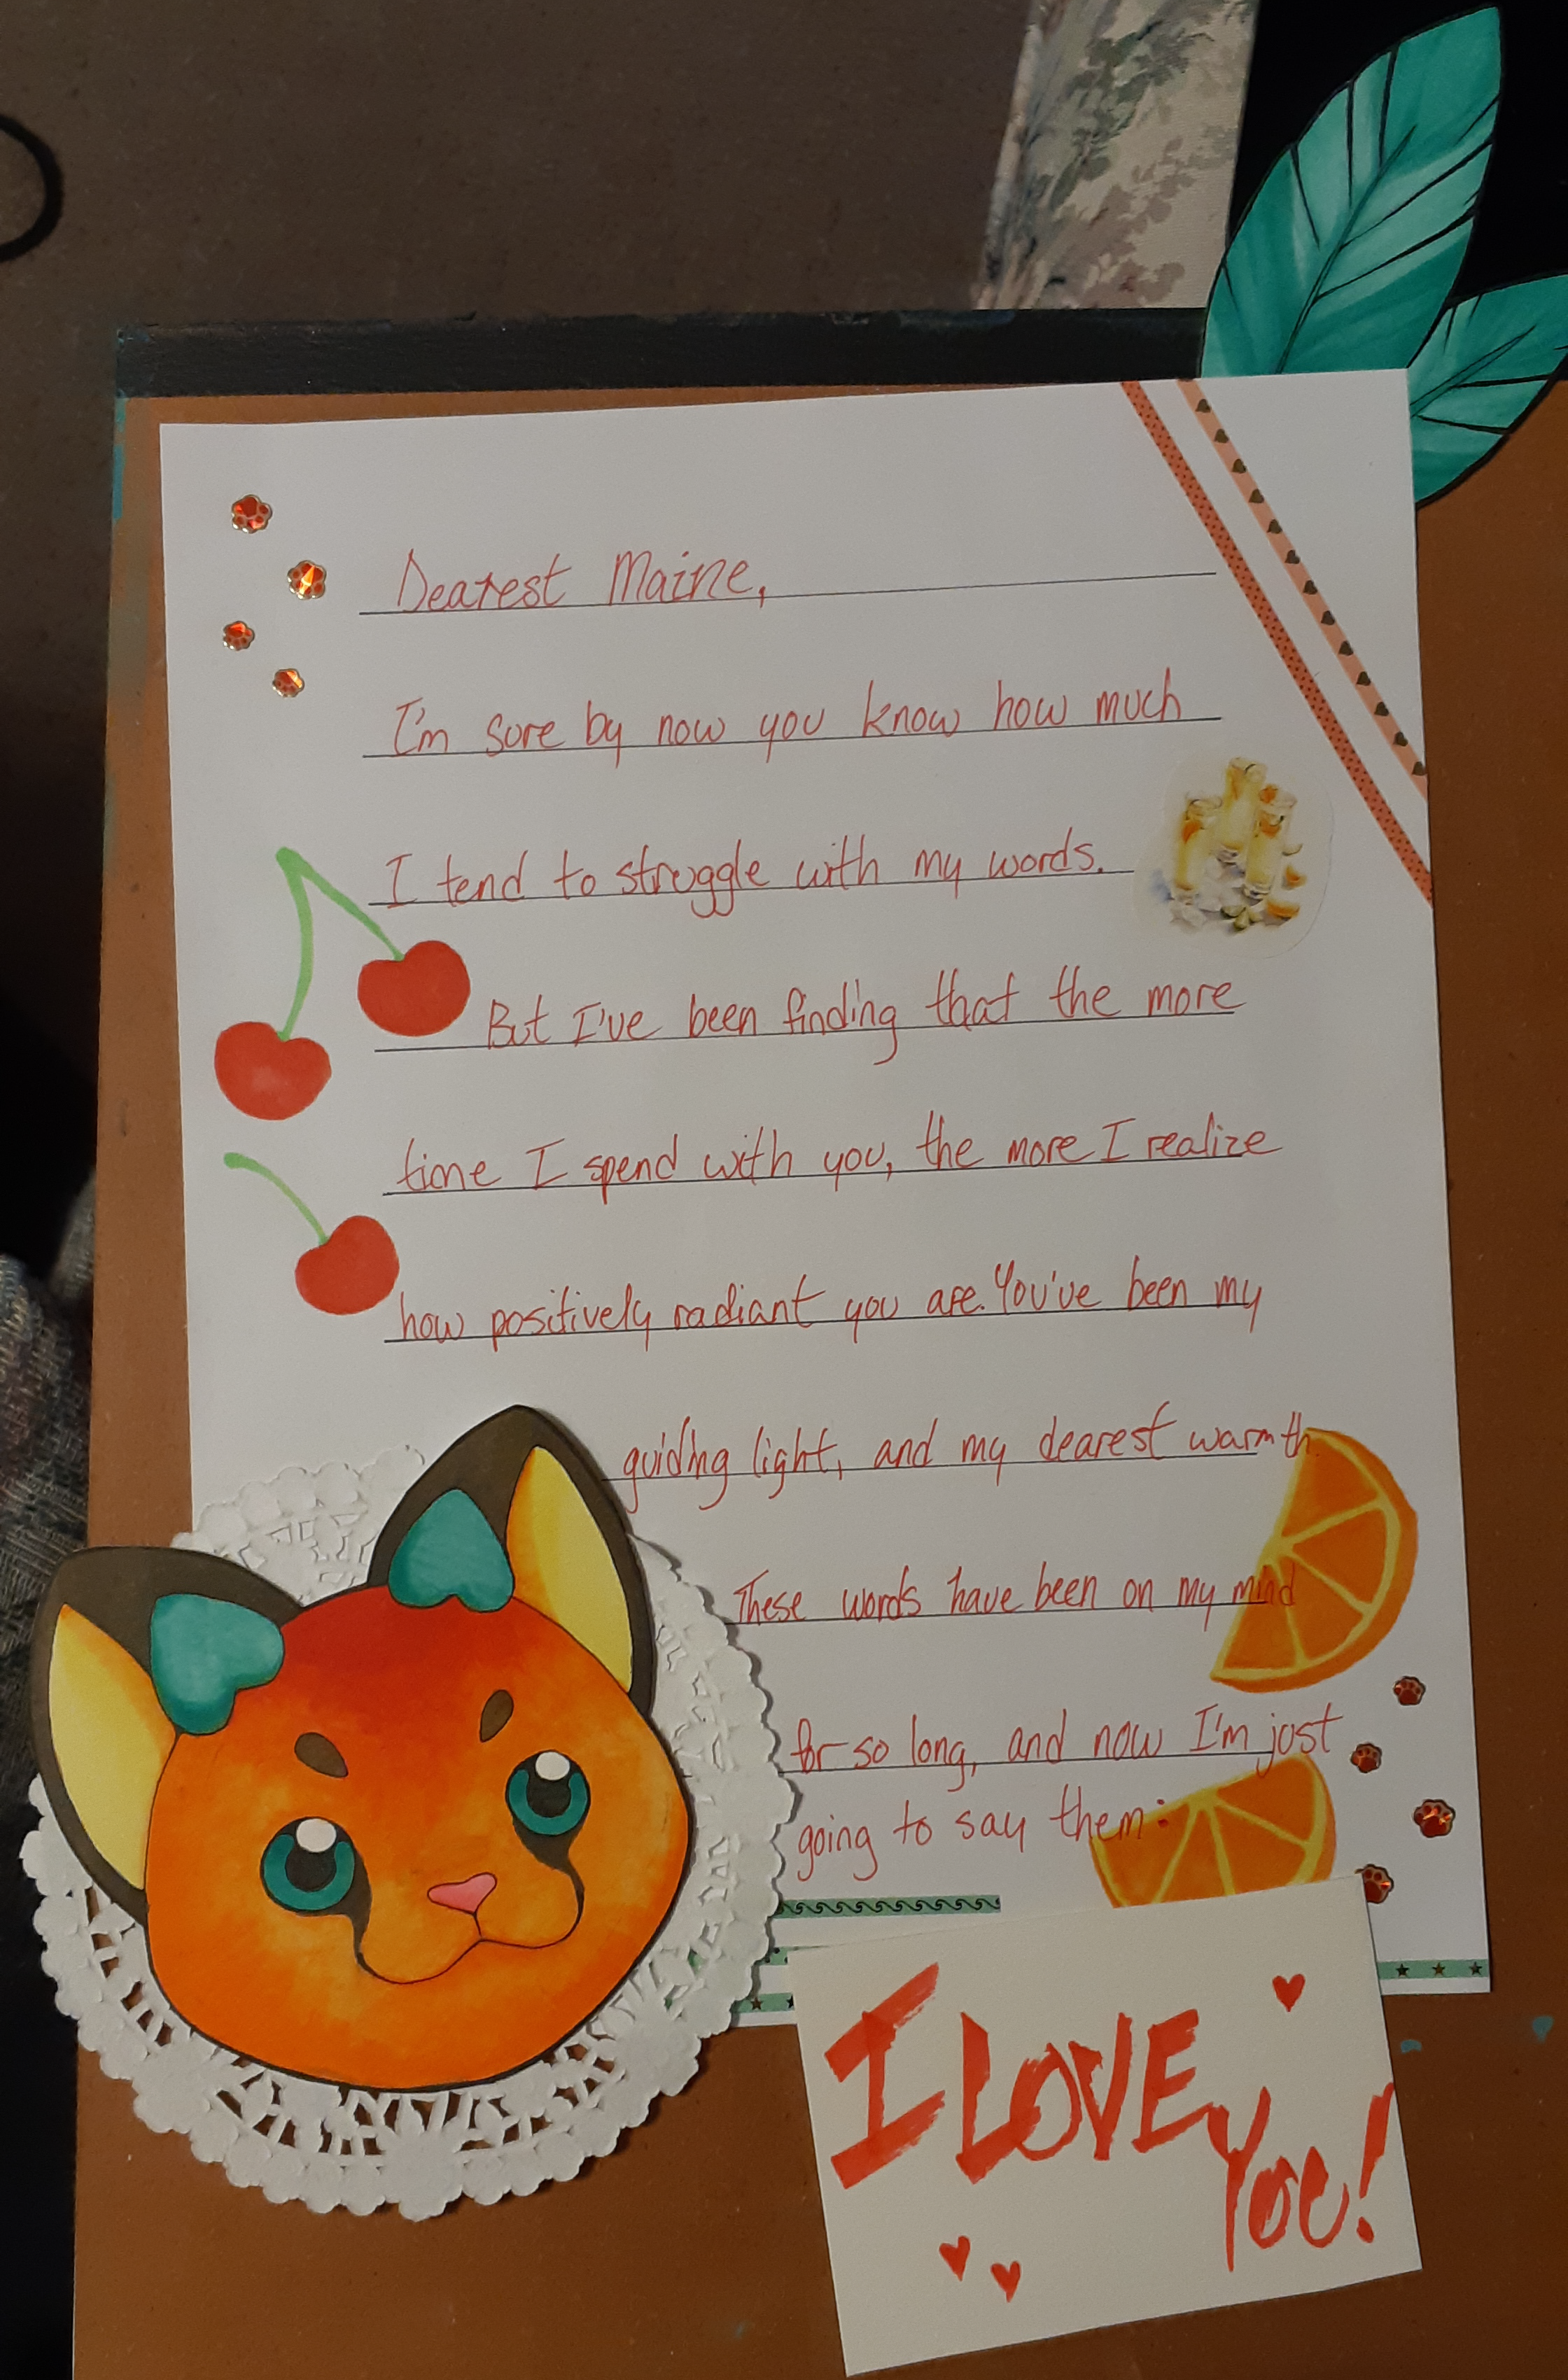 Dearest Maine,
I'm sure by now you know how much
I tend to struggle with my words.
But I've been finding that the more
time I spend with you, the more I realize
how positively radiant you are. You've been my
guiding light, and my dearest warmth
These words have been on my mind
for so long, and now I'm just
going to say them:
I LOVE
You!